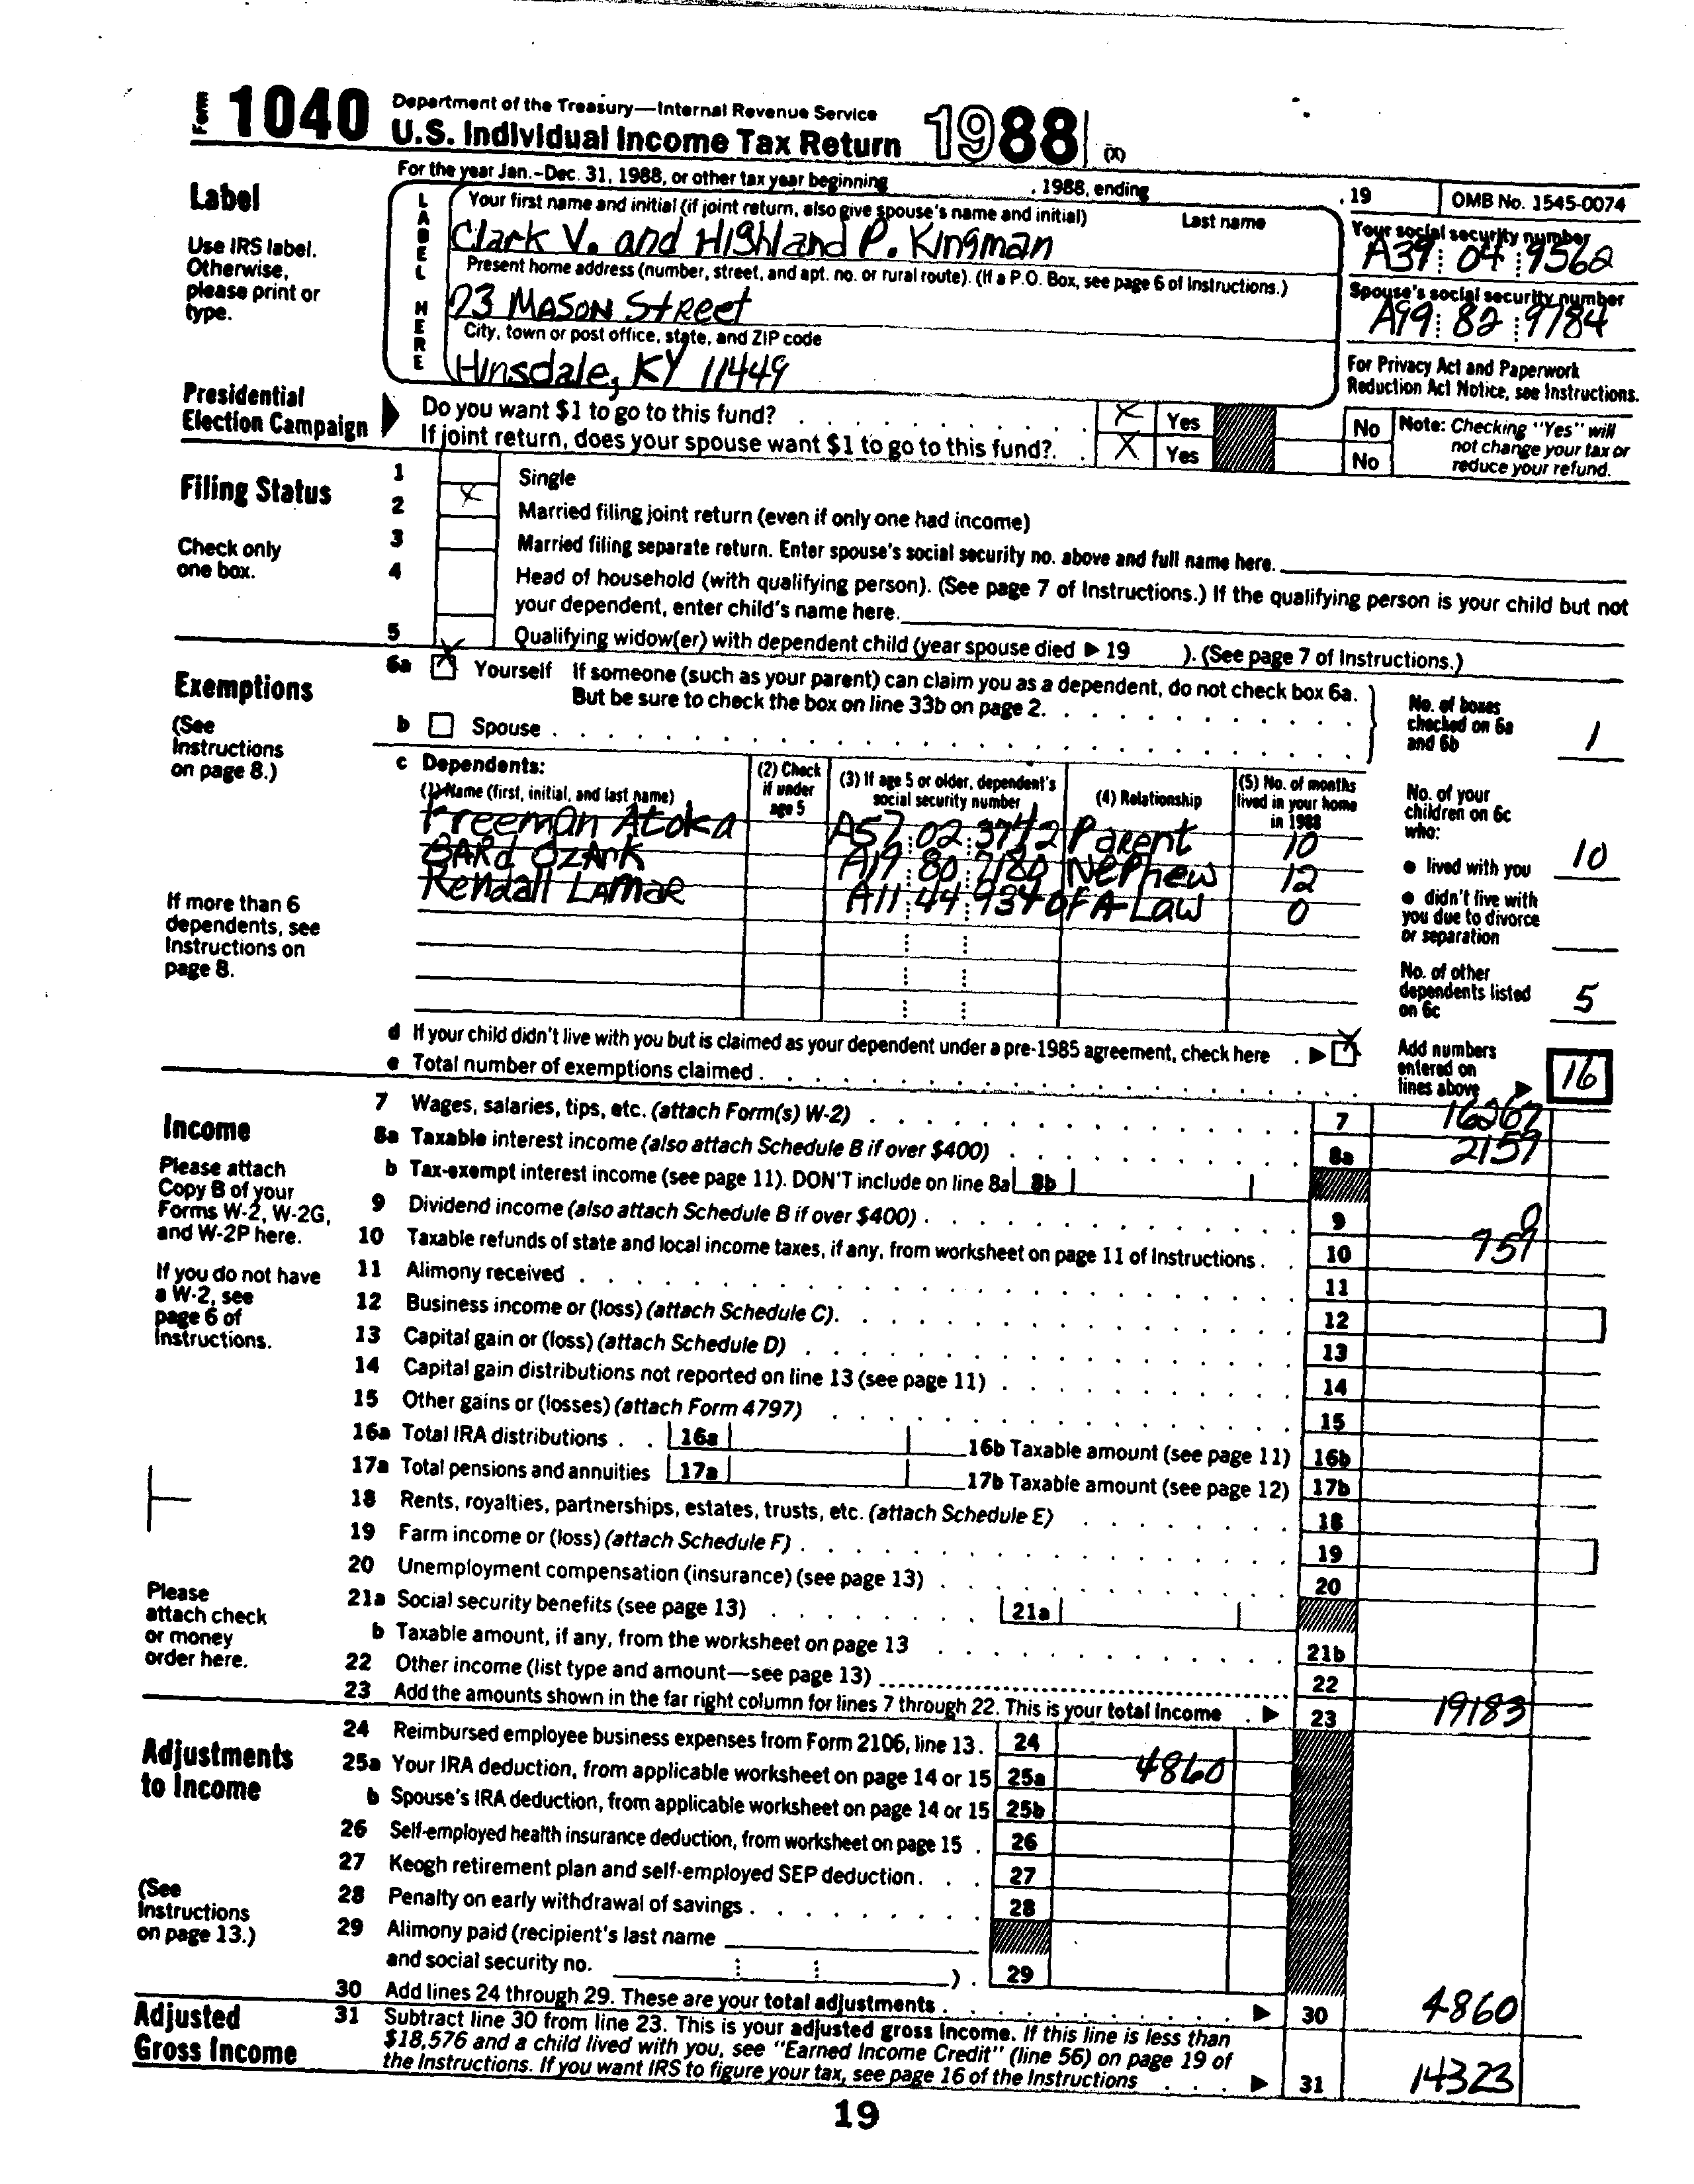 Form 1040 Department of the Treasury—Internal Revenue Service
U.S. Individual Income Tax Return 1988 (X)
For the year Jan.-Dec. 31, 1988, or other tax year beginning , 1988, ending , 19 OMB No. 1545-0074
Label
Use IRS label. Otherwise, please print or type.
LABEL HERE
Your first name and initial (if joint return, also give spouse's name and initial) Last name
Clark V. and Highland P. Kingman
Your social security number
A39 04 9562
Present home address (number, street, and apt. no. or rural route). (If a P.O. Box, see page 6 of Instructions.)
73 Mason Street
Spouse's social security number
A99 82 9784
City, town or post office, state, and ZIP code
Hinsdale, KY 11449
For Privacy Act and Paperwork Reduction Act Notice, see Instructions.
Presidential Election Campaign
Do you want $1 to go to this fund? X Yes No
If joint return, does your spouse want $1 to go to this fund? X Yes No
Note: Checking "Yes" will not change your tax or reduce your refund.
Filing Status
Check only one box.
1 Single
2 X Married filing joint return (even if only one had income)
3 Married filing separate return. Enter spouse's social security no. above and full name here.
4 Head of household (with qualifying person). (See page 7 of Instructions.) If the qualifying person is your child but not
your dependent, enter child's name here.
5 Qualifying widow(er) with dependent child (year spouse died ▶ 19 ). (See page 7 of Instructions.)
Exemptions
(See Instructions on page 8.)
6a X Yourself If someone (such as your parent) can claim you as a dependent, do not check box 6a.
But be sure to check the box on line 33b on page 2.
b Spouse
No. of boxes checked on 6a and 6b 1
c Dependents:
(1) Name (first, initial, and last name) (2) Check if under age 5 (3) If age 5 or older, dependent's social security number (4) Relationship (5) No. of months lived in your home in 1988
Freeman Atoka A57 02 3742 Parent 10
Bard Ozark A19 80 7180 Nephew 12
Kendall Lamar A11 44 9340 f A-Law 0
If more than 6 dependents, see Instructions on page 8.
No. of your children on 6c who:
● lived with you 10
● didn't live with you due to divorce or separation
No. of other dependents listed on 6c 5
d If your child didn't live with you but is claimed as your dependent under a pre-1985 agreement, check here ▶ X
e Total number of exemptions claimed
Add numbers entered on lines above ▶ 16
Income
Please attach Copy B of your Forms W-2, W-2G, and W-2P here.
If you do not have a W-2, see page 6 of Instructions.
Please attach check or money order here.
7 Wages, salaries, tips, etc. (attach Form(s) W-2) 7 16267
8a Taxable interest income (also attach Schedule B if over $400) 8a 2159
b Tax-exempt interest income (see page 11). DON'T include on line 8a 8b
9 Dividend income (also attach Schedule B if over $400) 9 0
10 Taxable refunds of state and local income taxes, if any, from worksheet on page 11 of Instructions 10 757
11 Alimony received 11
12 Business income or (loss) (attach Schedule C) 12
13 Capital gain or (loss) (attach Schedule D) 13
14 Capital gain distributions not reported on line 13 (see page 11) 14
15 Other gains or (losses) (attach Form 4797) 15
16a Total IRA distributions 16a 16b Taxable amount (see page 11) 16b
17a Total pensions and annuities 17a 17b Taxable amount (see page 12) 17b
18 Rents, royalties, partnerships, estates, trusts, etc. (attach Schedule E) 18
19 Farm income or (loss) (attach Schedule F) 19
20 Unemployment compensation (insurance) (see page 13) 20
21a Social security benefits (see page 13) 21a
b Taxable amount, if any, from the worksheet on page 13 21b
22 Other income (list type and amount—see page 13) 22
23 Add the amounts shown in the far right column for lines 7 through 22. This is your total income ▶ 23 19183
Adjustments to Income
(See Instructions on page 13.)
24 Reimbursed employee business expenses from Form 2106, line 13. 24
25a Your IRA deduction, from applicable worksheet on page 14 or 15 25a 4860
b Spouse's IRA deduction, from applicable worksheet on page 14 or 15 25b
26 Self-employed health insurance deduction, from worksheet on page 15 26
27 Keogh retirement plan and self-employed SEP deduction 27
28 Penalty on early withdrawal of savings 28
29 Alimony paid (recipient's last name
and social security no. ) 29
30 Add lines 24 through 29. These are your total adjustments ▶ 30 4860
Adjusted Gross Income
31 Subtract line 30 from line 23. This is your adjusted gross income. If this line is less than
$18,576 and a child lived with you, see "Earned Income Credit" (line 56) on page 19 of
the Instructions. If you want IRS to figure your tax, see page 16 of the Instructions ▶ 31 14323
19